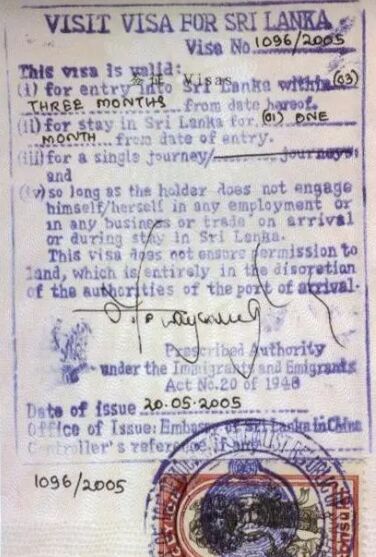 VISIT VISA FOR SRI LANKA
Visa No. 1096/2005
This visa is valid:
签证 Visas
(i) for entry into Sri Lanka within (03)
THREE MONTHS from date hereof.
(ii) for stay in Sri Lanka for (01) ONE
MONTH from date of entry.
(iii) for a single journey/ journeys;
and
(iv) so long as the holder does not engage
himself/herself in any employment or
in any business or trade on arrival
or during stay in Sri Lanka.
This visa does not ensure permission to
land, which is entirely in the discretion
of the authorities of the port of arrival.
Prescribed Authority
under the Immigrants and Emigrants
Act No.20 of 1948
Date of issue 20.05.2005
Office of Issue: Embassy of Sri Lanka in China
Controller's reference if any
1096/2005